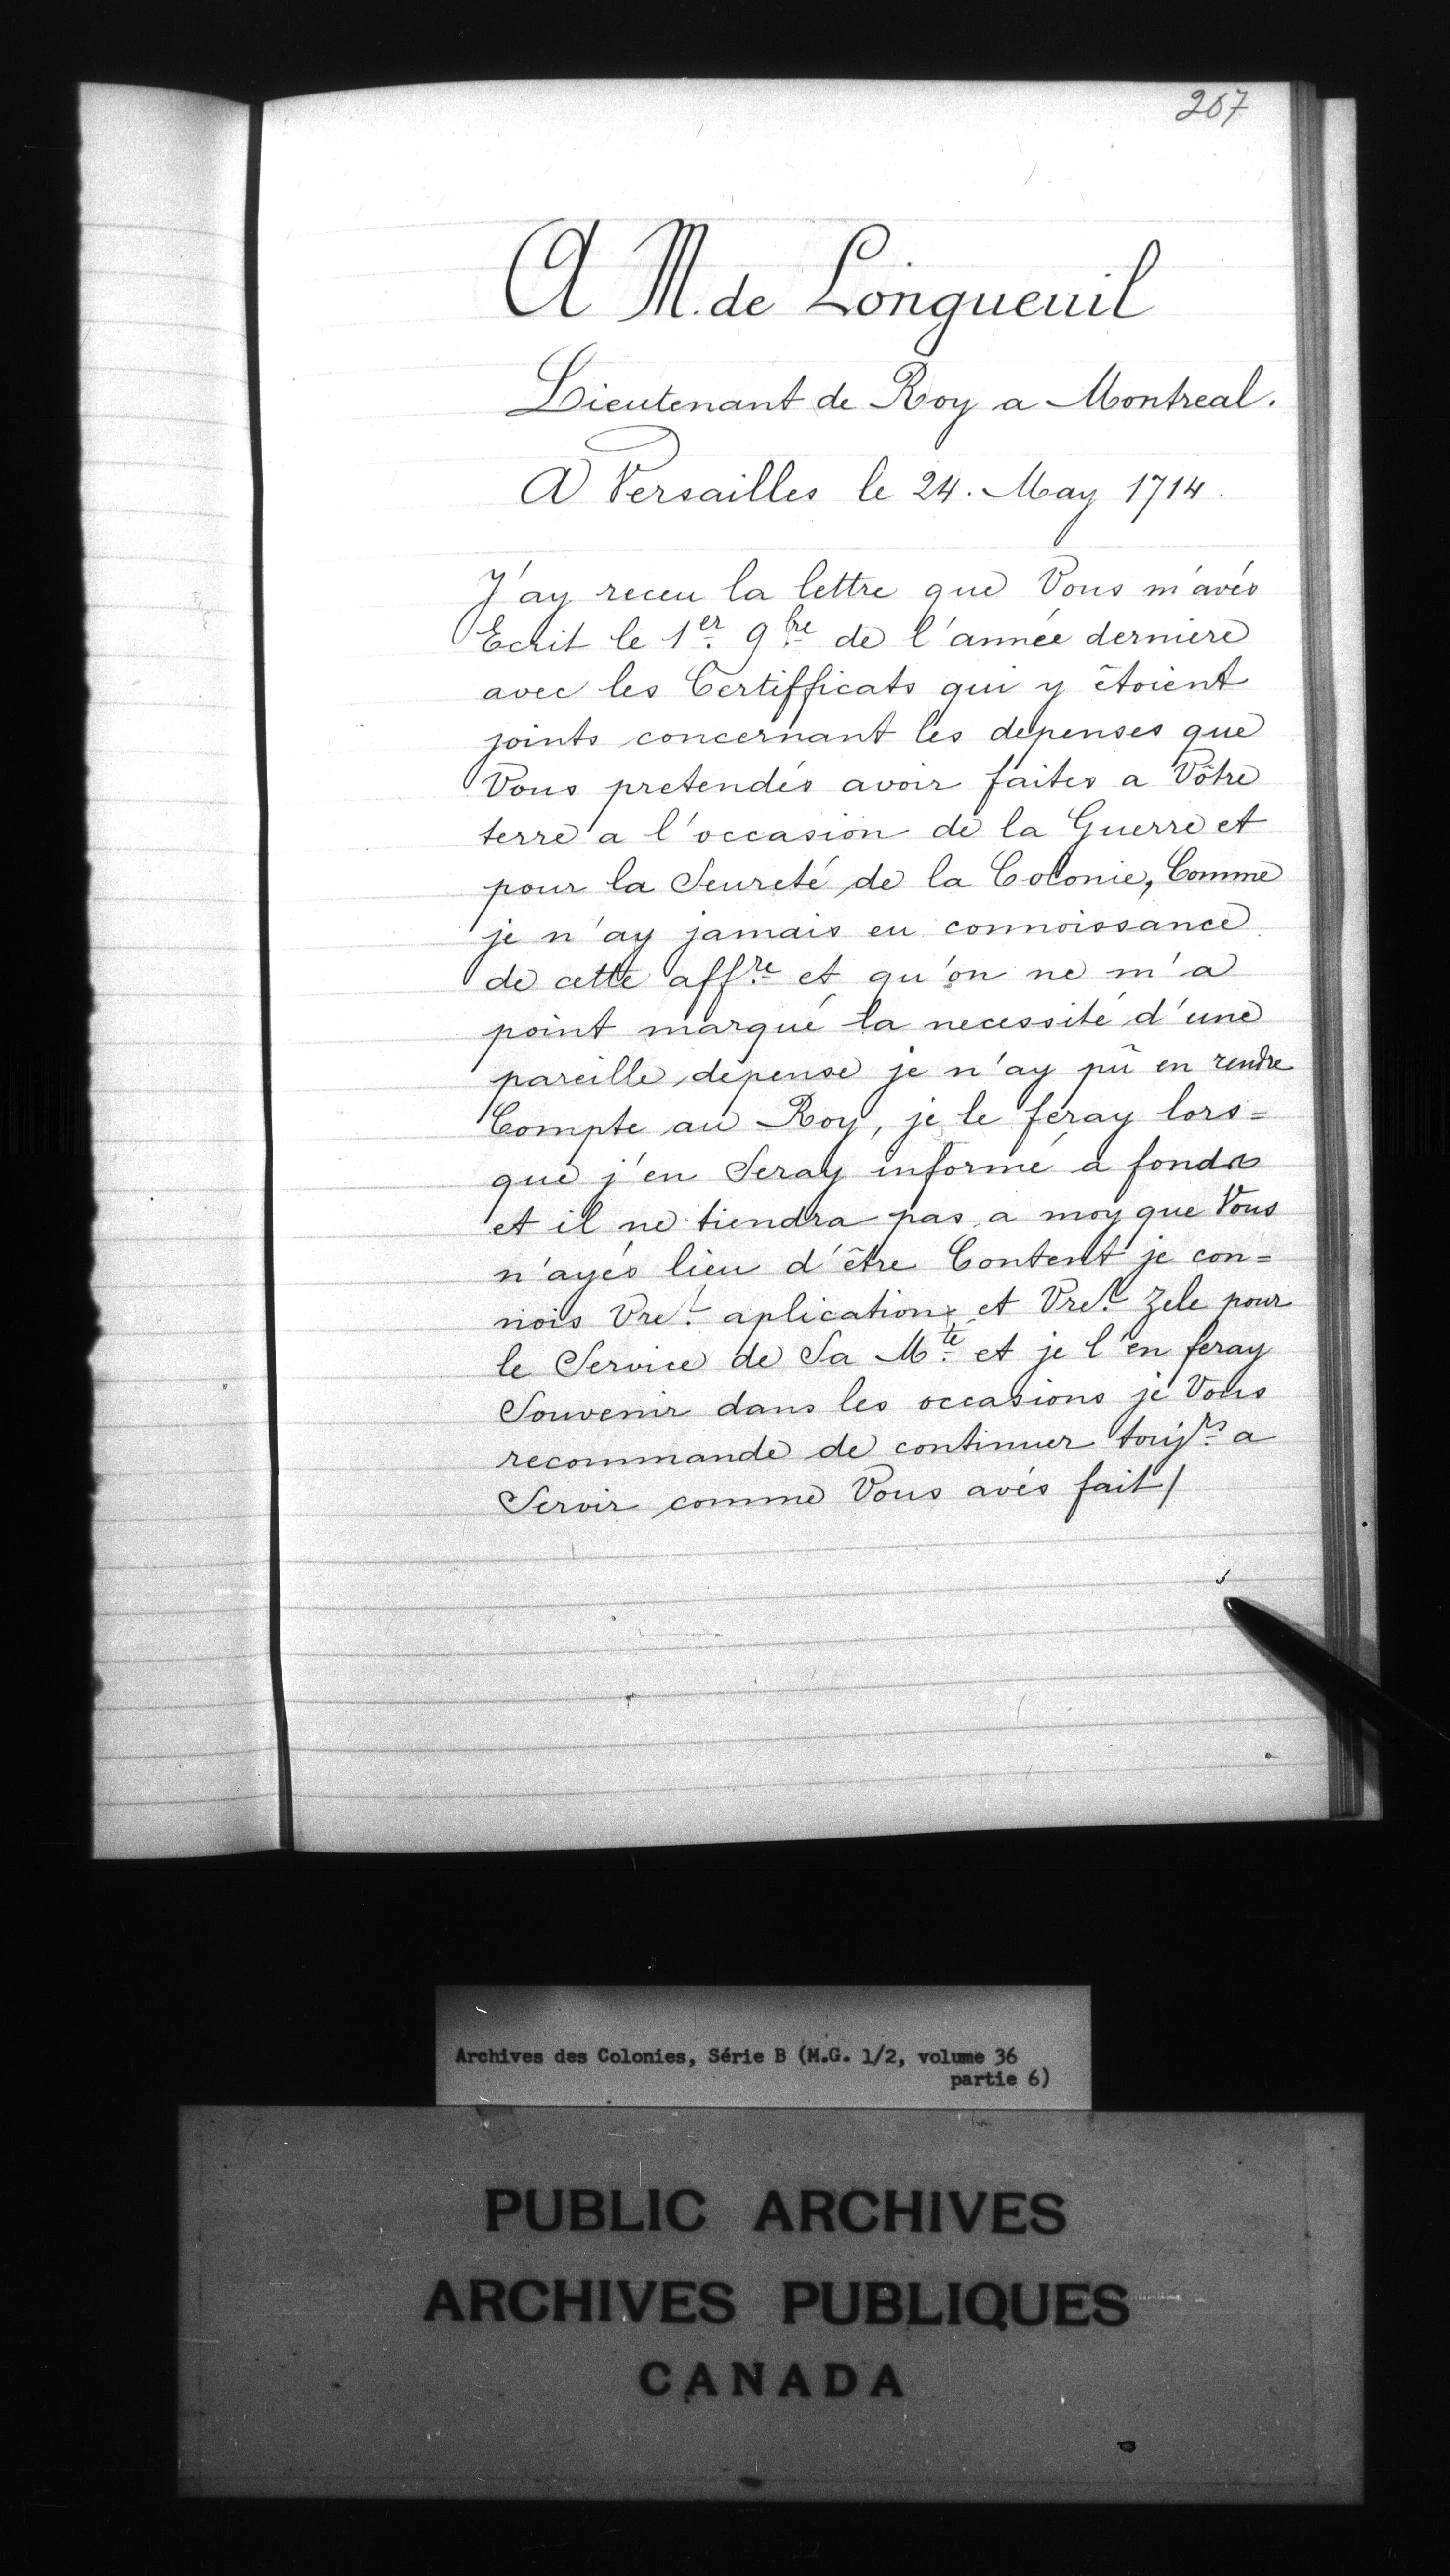 207
A M. de Longueuil
Lieutenant de Roy a Montreal.
A Versailles le 24. May 1714.
J'ay receu la lettre que Vous m'avés
Ecrit le 1er. 9bre de l'année derniere
avec les Certifficats qui y êtoient
joints concernant les depenses que
Vous pretendés avoir faites a Vôtre
terre a l'occasion de la Guerre et
pour la Seureté de la Colonie, Comme
je n'ay jamais eu connoissance
de cette affre. et qu'on ne m'a
point marqué la necessité d'une
pareille depense je n'ay pû en rendre
Compte au Roy, je le feray lors=
que j'en Seray informé a fonds
et il ne tiendra pas a moy que Vous
n'ayés lieu d'être Content je con=
nois Vre. aplication et Vre. Zele pour
le Service de Sa Mté. et je l'en feray
Souvenir dans les occasions je Vous
recommande de continuer toujrs. a
Servir comme Vous avés fait/
Archives des Colonies, Série B (M.G. 1/2, volume 36
partie 6)
PUBLIC ARCHIVES
ARCHIVES PUBLIQUES
CANADA